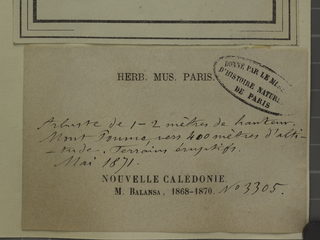 HERB. MUS. PARIS.
DONNÉ PAR LE MUSÉ
D'HISTOIRE NATUR
DE PARIS
Arbuste de 1-2 mètres de hauteur.
Mont Poume, vers 400 mètres d'alti-
-tude. Terrains éruptifs.
Mai 1871.
NOUVELLE CALÉDONIE.
M. BALANSA, 1868-1870. No 3305.